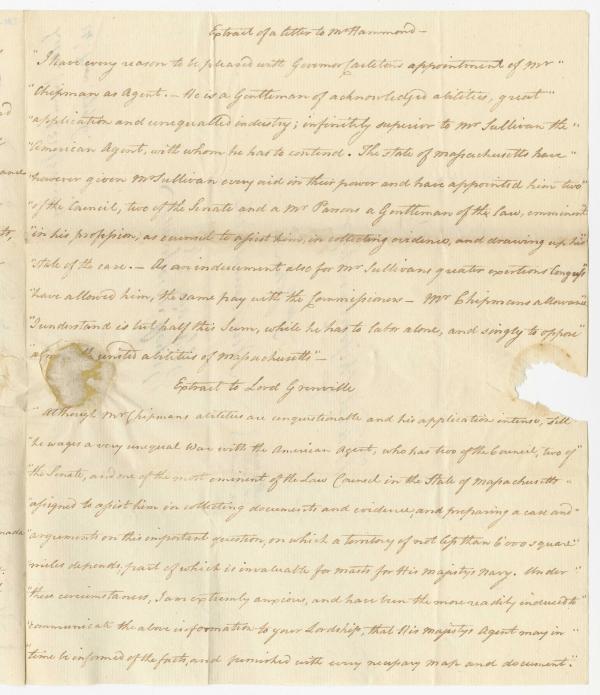 Extract of a letter to Mr Hammond —
"I have every reason to be pleased with Governor Carletons appointment of Mr"
"Chipman as Agent. — He is a Gentleman of acknowledged abilities, great"
"application and unequalled industry; infinitely superior to Mr Sullivan the"
"American Agent, with whom he has to contend. The state of Massachusetts have"
"however given Mr Sullivan every aid in their power and have appointed him two"
"of the Council, two of the Senate and a Mr Parsons a Gentleman of the Law, emminent
"in his profession, as counsel to assist him, in collecting evidence, and drawing up his
"State of the case. — As an inducement also for Mr Sullivans greater exertions Congress
"have allowed him, the same pay with the Commissioners — Mr Chipmans allowance
"I understand is but half this Sum, while he has to labor alone, and singly to oppose"
united abilities of Massachusetts" —
Extract to Lord Grenville
"Although Mr Chipmans abilities are unquestionable and his application intense, still
"he wages a very unequal War with the American Agent, who has two of the Council, two of"
"the Senate, and one of the most eminent of the Law Council in the State of Massachusetts"
"assigned to assist him in collecting documents and evidence, and preparing a case and"
"arguments on this important question, on which a territory of not less than 6000 square"
"miles depends, part of which is invaluable for masts for His Majestys Navy. Under"
"these circumstances, I am extremly anxious, and have been the more readily induced to
"communicate the above information to your Lordship, that His Majestys Agent may in"
"time be informed of the facts, and furnished with every necessary map and document."